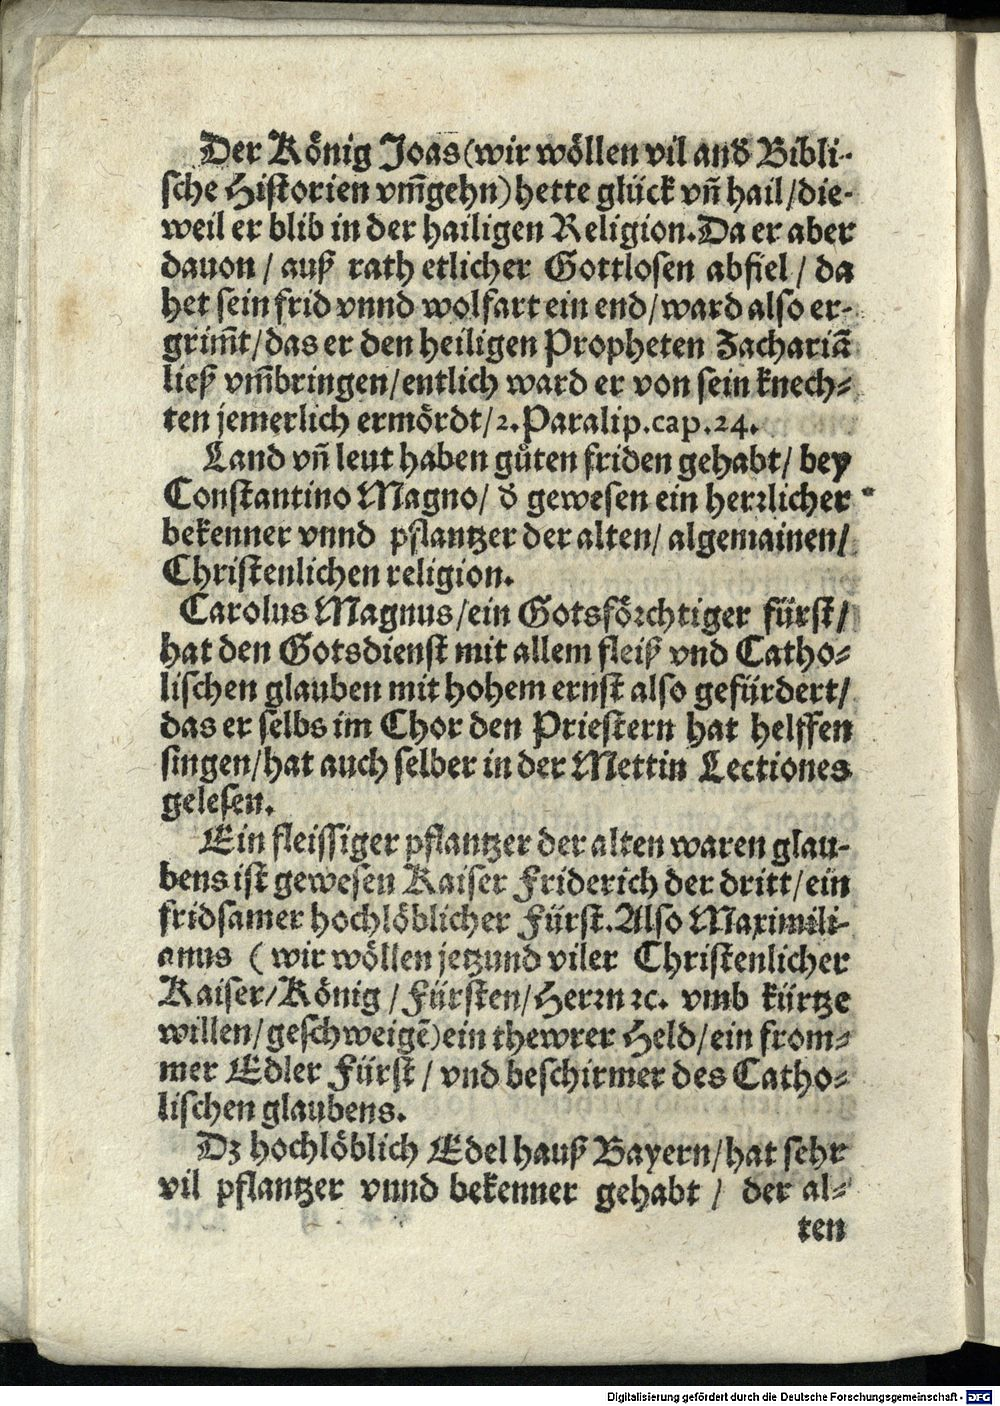 Der König Joas (wir wöllen vil and̕ Bibli-
sche Historien vm̃gehn) hette glück vñ hail / die-
weil er blib in der hailigen Religion. Da er aber
dauon / auß rath etlicher Gottlosen abfiel / da
het sein frid vnnd wolfart ein end / ward also er-
grim̃t / das er den heiligen Propheten Zachariã
ließ vm̃bringen / entlich ward er von sein knech-
ten jemerlich ermördt / 2. Paralip. cap. 24.
Land vñ leut haben gůten friden gehabt / bey
Constantino Magno / d̕ gewesen ein herꝛlicher
bekenner vnnd pflantzer der alten / algemainen /
Christenlichen religion.
Carolus Magnus / ein Gotsföꝛchtiger fürst /
hat den Gotsdienst mit allem fleiß vnd Catho-
lischen glauben mit hohem ernst also gefürdert /
das er selbs im Chor den Priestern hat helffen
singen / hat auch selber in der Mettin Lectiones
gelesen.
Ein fleissiger pflantzer der alten waren glau-
bens ist gewesen Kaiser Friderich der dritt / ein
fridsamer hochlöblicher Fürst. Also Maximili-
anus ( wir wöllen jetzund viler Christenlicher
Kaiser / König / Fürsten / Herꝛn ꝛc. vmb kürtze
willen / geschweigẽ) ein thewrer Held / ein from-
mer Edler Fürst / vnd beschirmer des Catho-
lischen glaubens.
Dz hochlöblich Edel hauß Bayern / hat sehr
vil pflantzer vnnd bekenner gehabt / der al-
ten
Digitalisierung gefördert durch die Deutsche Forschungsgemeinschaft - DFG